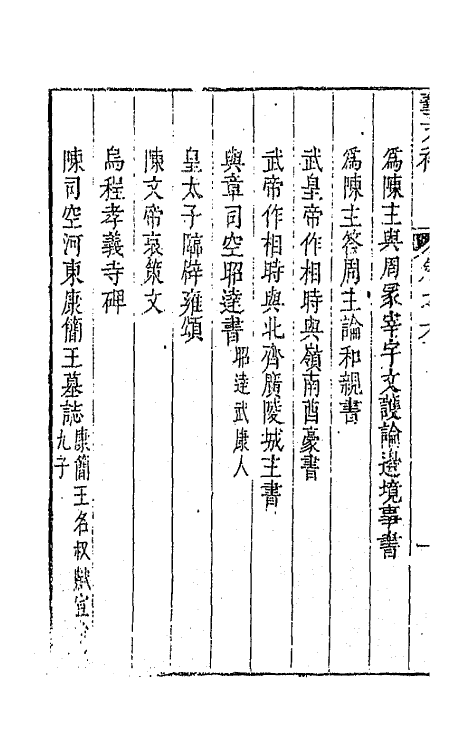 為陳主與周冢宰宇文護論邊境事書
為陳主答周主論和親書
武皇帝作相時與嶺南酋豪書
武帝作相時與北齊廣陵城主書
與章司空昭達書昭達武康人
皇太子臨辟雍頌
陳文帝哀策文
烏程孝義寺碑
陳司空河東康簡王墓誌康簡王名叔獻宣
九子